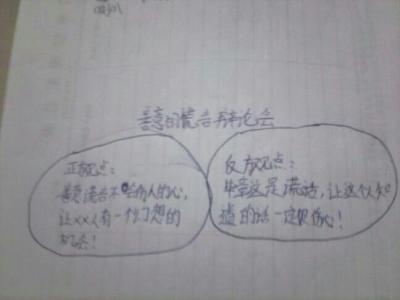 善意的谎言辩论会
正方观点：
善意谎言不会伤人的心，
让××人有一个幻想的
机会！
反方观点：
毕竟这是谎话，让这个人知
道的话一定很伤心！